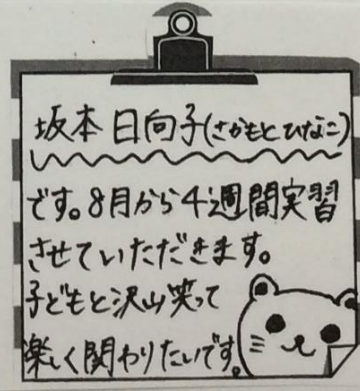 坂本日向子(さかもとひなこ)
です。8月から4週間実習
させていただきます。
子どもと沢山笑って
楽しく関わりたいです。